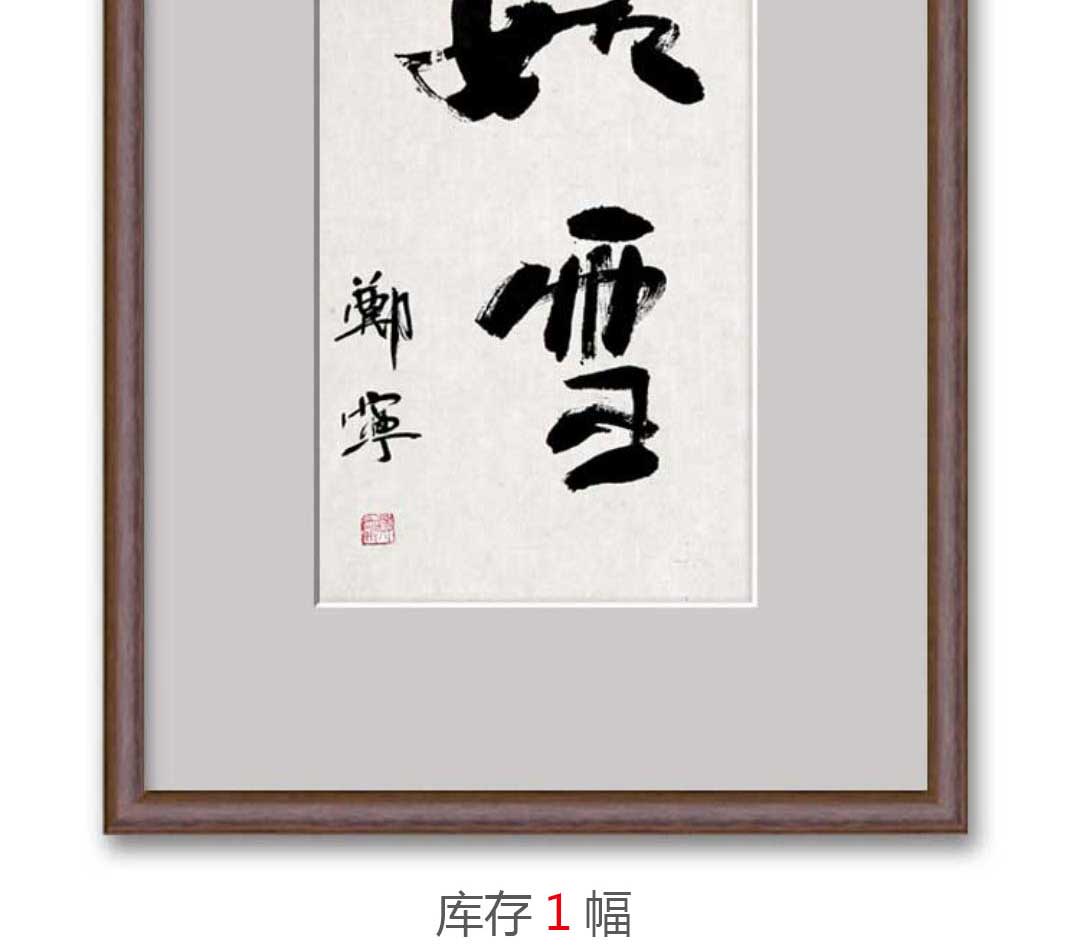 雪
鄭寧
库存 1 幅